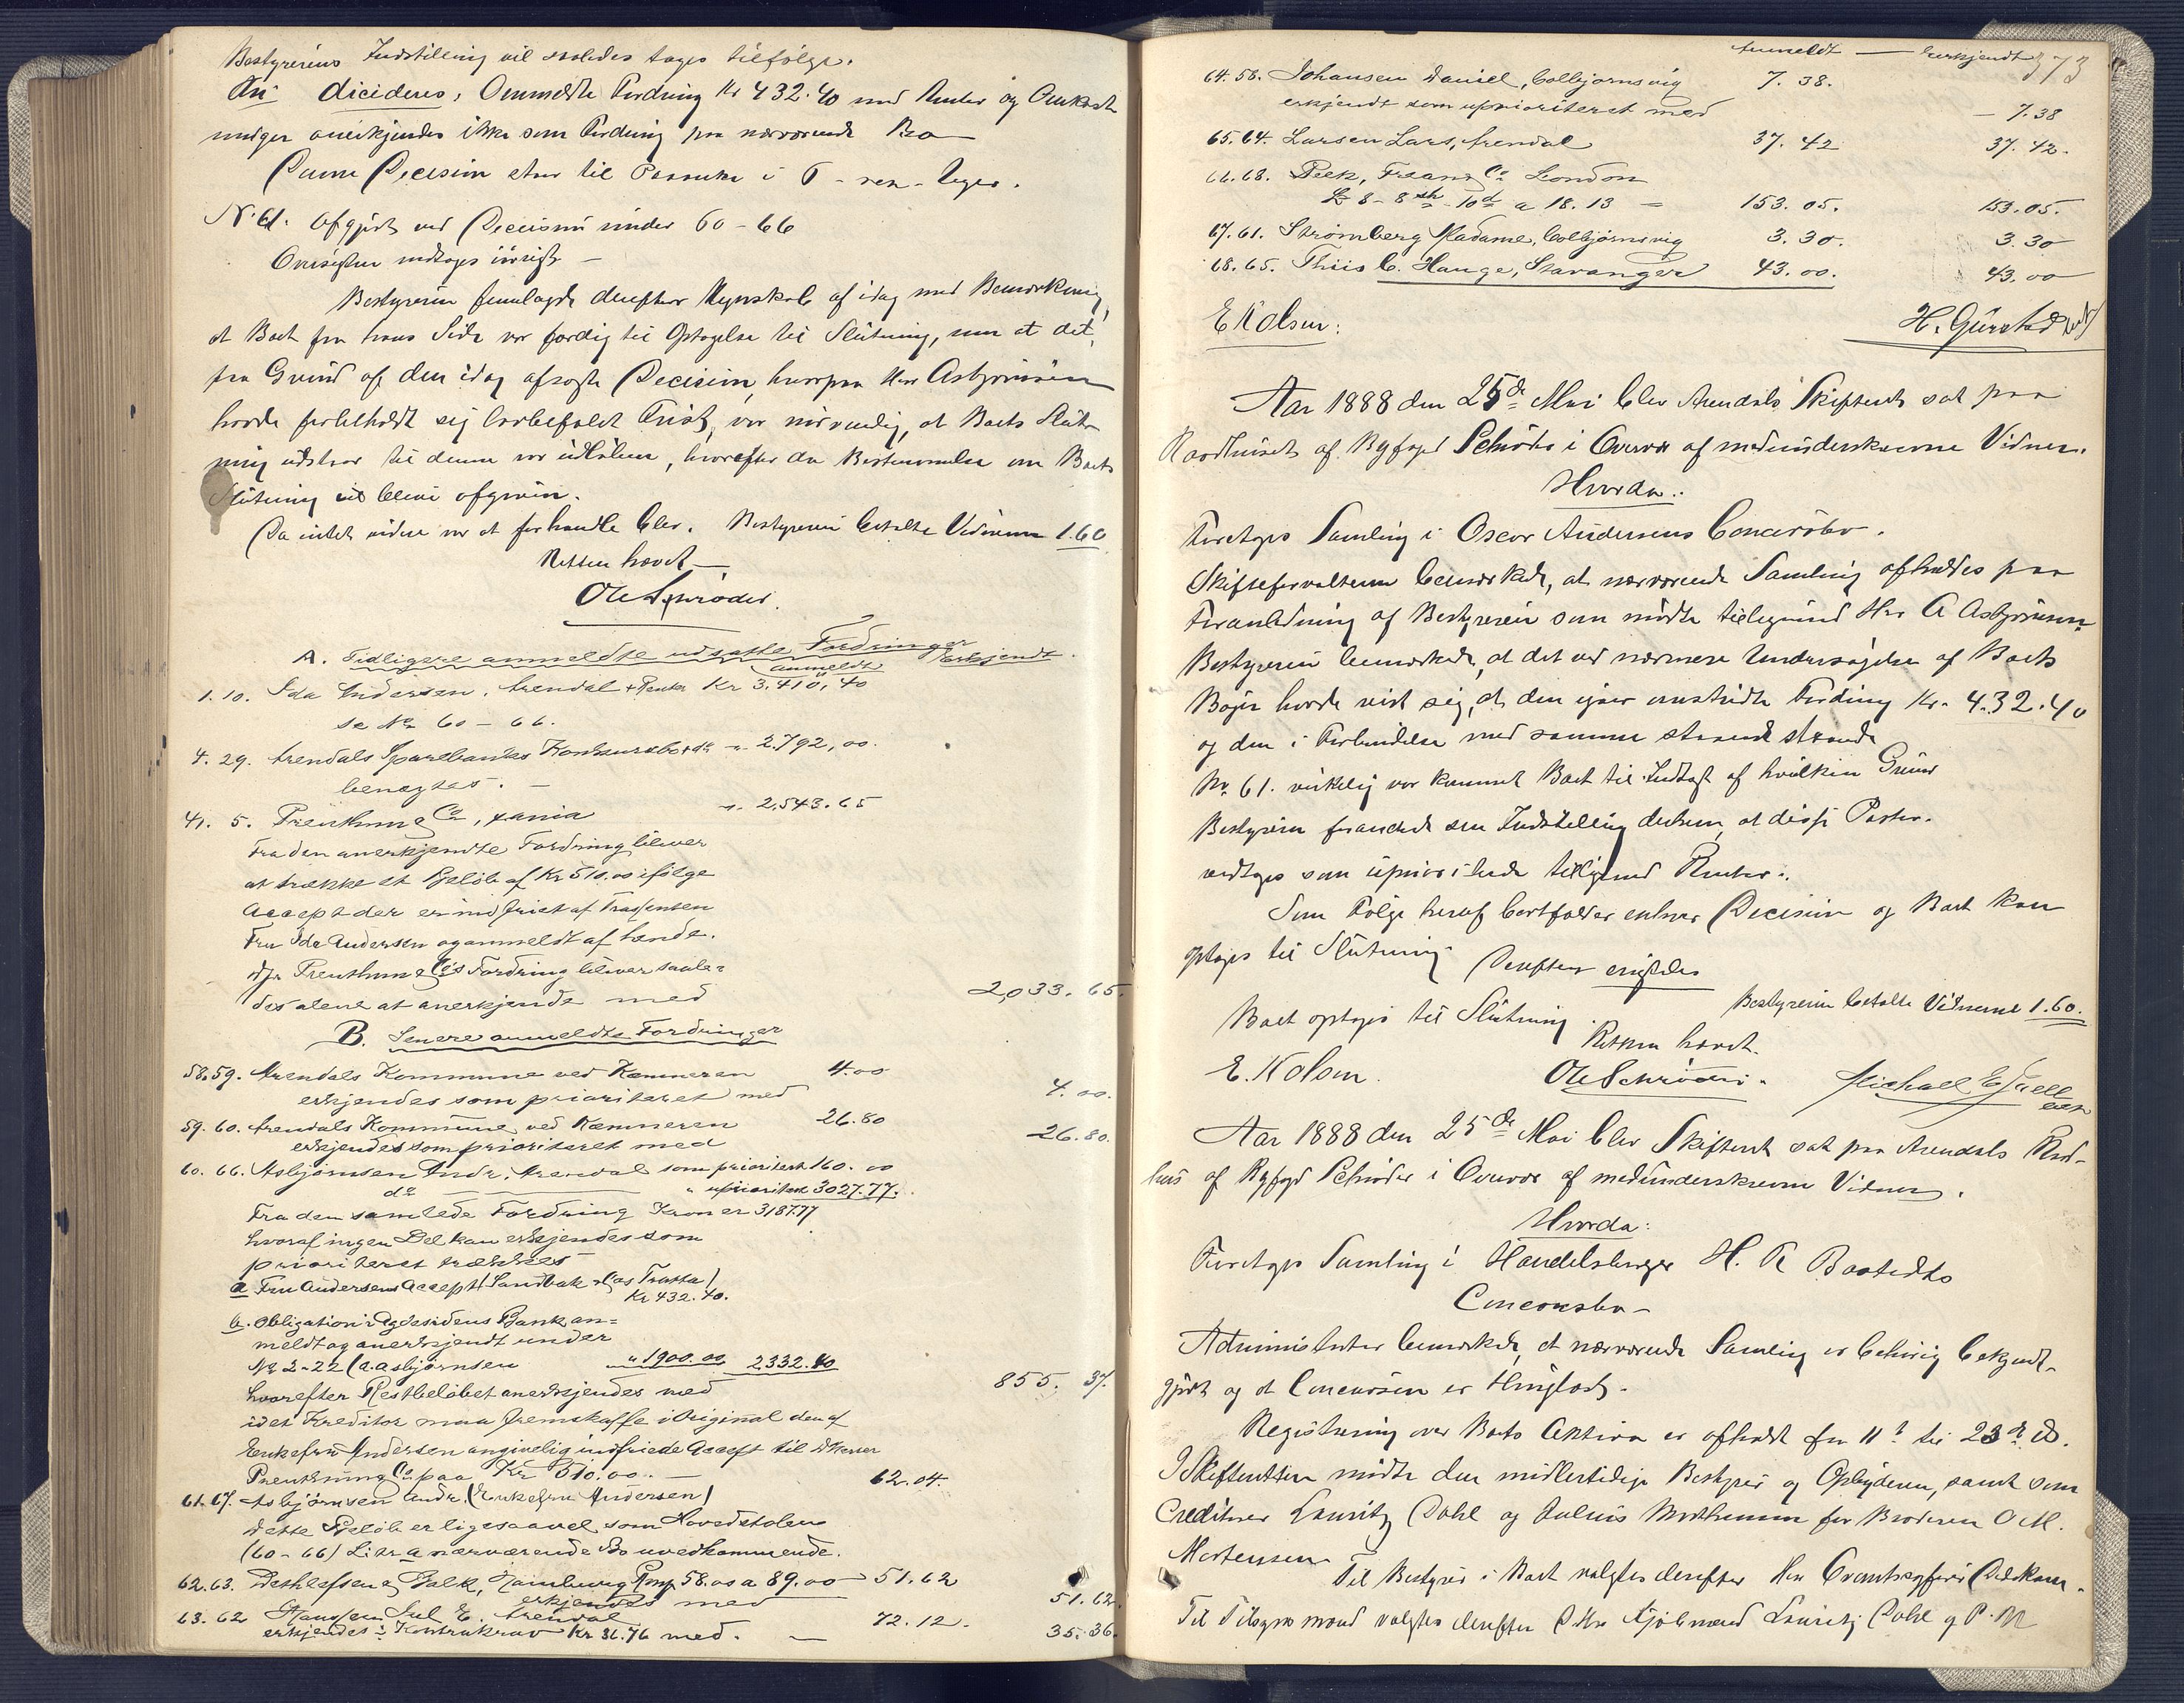 Bestyrerens Indstilling vil saaledes tages tilfølge.
decideres: Omme Fordring Kr 432.40 med Renter og Omkost
ninger anerkjendes ikke som Fordring paa nærværende Bo
Denne Decision staar til i 6 - sex - Uger.
No 61. afgjort ved Decision under 60 - 66
Oversigten vedtages iøvrigt -
Bestyreren fremlagde derefter Regnskab af idag med Bemærkning
at Boet fra hans Side var færdig til Optagelse til Slutning, men at det,
paa Grund af den idag afsagte Decision, hvorpaa Herr Asbjørnsen
havde forbeholdt sig lovbefalet Frist, var nødvendig, at Boets Slut-
ning udstaar til denne var udløben, hvorefter da Bestemmelse om Boets
Slutning vil blive afgiven.
Da intet videre var at forhandle blev. Bestyreren betalte Vidnerne 1.60
Retten hævet -
Ole Schrøder.
A. Tidligere anmeldte udsatte Fordringer
anmeldt erkjendt.
1. 10. Ida Andersen, Arendal + Renter Kr 3.410,40
se No 60 - 66.
4. 29. Arendals Sparebanks Konkursbo do - " 2.792,00.
benegtes. -
41. 5. Preuthun & Co, Xania " 2,543.65
Fra den anerkjendte Fordring bliver
at trække et Beløb af Kr 510.00 ifølge
Accept der er indfriet af Trassenten
Fru Ida Andersen og anmeldt af hende.
Hr Preuthun & Co's Fordring bliver saale-
des alene at anerkjende med 2,033.65.
B. Senere anmeldte Fordringer
58.59. Arendals Kommune ved Kæmneren 4.00
erkjendes som prioriteret med 4.00.
59.60. Arendals Kommune ved Kæmneren 26.80
erkjendes som prioriteret med 26.80.
60. 66. Asbjørnsen Andr. Arendal som prioritert 160.00
do " uprioritert 3027.77.
Fra den samlede Fordring Kroner 3187.77
hvoraf ingen Del kan erkjendes som
prioriteret trækkes
a Fru Andersens Accept (Sandbak & Cos Tratta)
Kr 432.40.
b. Obligation i Agdesidens Bank an-
meldt og anerkjendt under
No 2-22 (A. Asbjørnsen " 1900.00 2332.40
hvorefter Restbeløbet anerkjendes med 855.37.
idet Kreditor maa fremskaffe i Original den af
Enkefru Andersen angivelig indfriede Accept til Herrer
Preuthun & Co paa Kr 510.00. -
61.67. Asbjørnsen Andr. (Enkefru Andersen) 62.04.
Dette Beløb er ligesaavel som Hovedstolen
(60-66) Litr a nærværende Bo uvedkommende.
62.63. Dethlefsen & Balk, Hamburg Rmp 58.00 a 89.00 51.62
erkjendes med 51.62.
63.62 Hanssen Jul E. Arendal 72.12.
erkjendes ÷ Kontrakrav Kr 36.76 med. - 35.36.
anmeldt - erkjendt 373
64.58. Johansen Daniel, Colbjørnsvig 7.38.
erkjendt som uprioriteret med - 7.38
65.64. Larsen Lars, Arendal 37.42 37.42.
66.68. Peek, Frean & Co London
£ 8 - 8 sh - 10 d a 18.13 = 153.05. 153.05.
67.61. Strømberg Madame, Colbjørnsvig 3.30. 3.30
68.65. Thiis C. Hauge, Stavanger 43.00. 43.00
E K Olsen: H. Gürstad
Aar 1888 den 25de Mai blev Arendals Skifteret sat paa
Raadhuset af Byfoged Schrøder i Overvær af medunderskrevne Vidner.
Hvorda:
Foretoges Samling i Oscar Andersens Concursbo.
Skifteforvalteren bemærkede, at nærværende Samling afholdes paa
Foranledning af Bestyreren som mødte tilligemed Herr A Asbjørnsen
Bestyreren bemærkede, at det ved nærmere Undersøgelse af Boets
Bøger havde vist sig, at den igaar omstridte Fordring Kr. 432.40
og den i Forbindelse med samme staaende
No. 61. virkelig var kommet Boet til Indtægt af hvilken Grund
Bestyreren forandrede sin Indstilling derhen at disse Poster
vedtages som uprioriterede tilligemed Renter.
Som Følge heraf bortfalder enhver Decision og Boet kan
optages til Slutning Derefter
Boet optages til Slutning. Bestyreren betalte Vidnerne 1.60.
Retten hævet.
E. K Olsen. Ole Schrøder. Michael
Aar 1888 den 25de Mai blev Skifteret sat paa Arendals Raad-
hus af Byfoged Schrøder i Overvær af medunderskrevne Vidner.
Hvorda:
Foretoges Samling i Handelsborger H. R Baastedts
Concursbo -
Administrator bemærkede, at nærværende Samling er behørig bekjendt-
gjort og at Concursen er thinglæst.
Registrering over Boets Aktiva er afholdt fra 11te til 23de ds.
I Skifteretten mødte den midlertidige Bestyrer og Opbyderen, samt som
Creditorer Lauritz Dahl og Julius Mortensen for Broderen O M.
Mortensen Til Bestyrer i Boet valgtes derefter Herr
Til Tilsynsmænd valgtes derefter D'Hrr Kjøbmænd Lauritz Dahl og P. M